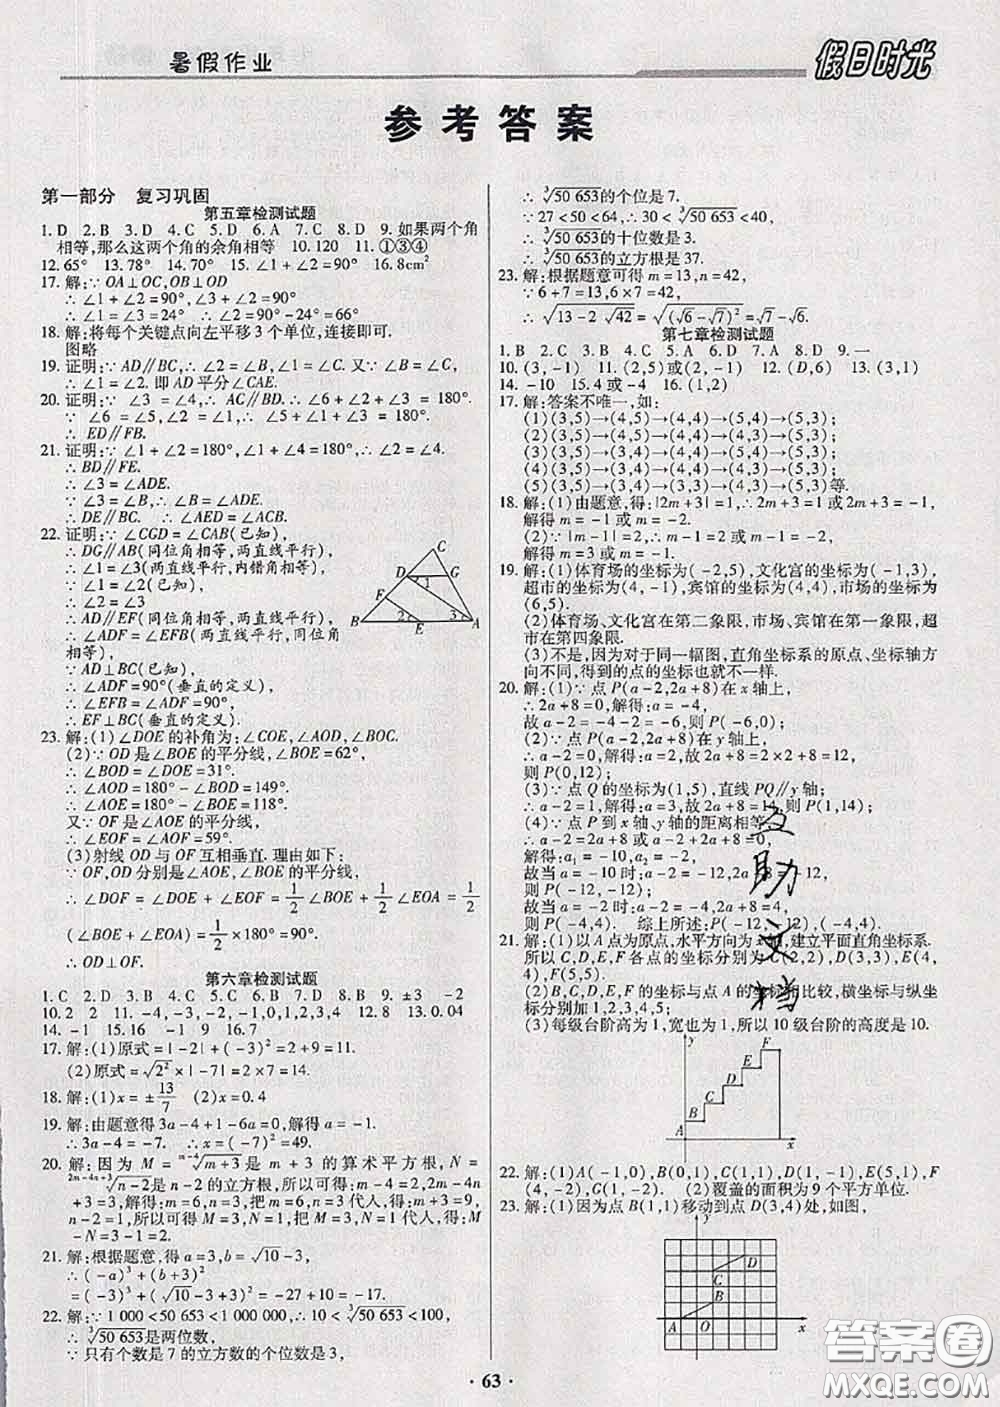 暑假作业
假日时光
参考答案
第一部分 复习巩固
第五章检测试题
1.D 2.B 3.D 4.C 5.A 6.A 7.C 8.D 9.如果两个角
相等,那么这两个角的余角相等 10.120 11.①③④
12.65° 13.78° 14.70° 15.∠1+∠2=90° 16.8cm²
17.解:∵OA⊥OC,OB⊥OD
∴∠1+∠2=90°,∠3+∠2=90°,
∴∠1=∠3=90°-∠2=90°-24°=66°
18.解:将每个关键点向左平移3个单位,连接即可.
图略
19.证明:∵AD∥BC,∴∠B=∠1,∠2=∠C. 又∵∠B=∠C,
∴∠1=∠2. 即AD平分∠CAE.
20.证明:∵∠3=∠4,∴AC∥BD.∴∠6+∠2+∠3=180°.
∵∠6=∠5,∠2=∠1,∴∠5+∠1+∠3=180°.
∴ED∥FB.
21.证明:∵∠1+∠2=180°,∠1=∠4,∴∠2+∠4=180°.
∴BD∥FE.
∴∠3=∠ADE.
∵∠3=∠B,∴∠B=∠ADE.
∴DE∥BC. ∴∠AED=∠ACB.
22.证明:∵∠CGD=∠CAB(已知),
∴DG∥AB(同位角相等,两直线平行),
∴∠1=∠3(两直线平行,内错角相等)
∵∠1=∠2(已知),
∴∠2=∠3
∴AD∥EF(同位角相等,两直线平行),
∴∠ADF=∠EFB(两直线平行,同位角
相等),
∵AD⊥BC(已知),
∴∠ADF=90°(垂直的定义),
∴∠EFB=∠ADF=90°,
∴EF⊥BC(垂直的定义).
C
D
G
1
F
B
2
E
3
A
23.解:(1)∠DOE的补角为:∠COE,∠AOD,∠BOC.
(2)∵OD是∠BOE的平分线,∠BOE=62°,
∴∠BOD=∠DOE=31°.
∴∠AOD=180°-∠BOD=149°.
∴∠AOE=180°-∠BOE=118°.
又∵OF是∠AOE的平分线,
∴∠EOF=∠AOF=59°.
(3)射线OD与OF互相垂直.理由如下:
∵OF,OD分别是∠AOE,∠BOE的平分线,
∴∠DOF=∠DOE+∠EOF=1/2∠BOE+1/2∠EOA=1/2
(∠BOE+∠EOA)=1/2×180°=90°.
∴OD⊥OF.
第六章检测试题
1.C 2.D 3.D 4.C 5.A 6.A 7.B 8.D 9.±3 -2
10.2 2 11.-4,-3,-2,-1,0,1,2,3,4 12.8 13.0.04
14.-1 15.16 -1 9 16.7
17.解:(1)原式=|-2|+(-3)²=2+9=11.
(2)原式=√2²×|-7|=2×7=14.
18.解:(1)x=±13/7 (2)x=0.4
19.解:由题意得3a-4+1-6a=0,解得a=-1.
∴3a-4=-7. ∴x=(-7)²=49.
20.解:因为M=ᵐ⁻⁴√m+3是m+3的算术平方根,N=
²ᵐ⁻⁴ⁿ⁺³√n-2是n-2的立方根,所以m-4=2,2m-4n+3
=3,解得:m=6,n=3,把m=6,n=3代人,得:m+3=9,
n-2=1,所以可得M=3,N=1,把M=3,N=1代人,得:M-N
=3-1=2.
21.解:根据题意,得a=3,b=√10-3,
∴(-a)³+(b+3)²
=(-3)³+(√10-3+3)²=-27+10=-17.
22.解:∵1 000<50 653<1 000 000,∴10<³√50 653<100,
∴³√50 653是两位数,
∵只有个数是7的立方数的个位数是3,
∴³√50 653的个位是7.
∵27<50<64,∴30<³√50 653<40,
∴³√50 653的十位数是3.
∴³√50 653的立方根是37.
23.解:根据题意可得m=13,n=42,
∵6+7=13,6×7=42,
∴√13-2√42=√(√6-√7)²=√7-√6.
第七章检测试题
1.B 2.C 3.C 4.C 5.A 6.D 7.A 8.D 9.一
10.(3,-1) 11.(2,5)或(2,-1) 12.(D,6) 13.(3,1)
14.-10 15.4或-4 16.(1,2)
17.解:答案不唯一,如:
(1)(3,5)→(4,5)→(4,4)→(5,4)→(5,3);
(2)(3,5)→(4,5)→(4,4)→(4,3)→(5,3);
(3)(3,5)→(3,4)→(4,4)→(5,4)→(5,3);
(4)(3,5)→(3,4)→(4,4)→(4,3)→(5,3);
(5)(3,5)→(3,4)→(3,3)→(4,3)→(5,3)等.
18.解:(1)由题意,得:|2m+3|=1,∴2m+3=1或2m+3=-1,
解得m=-1或m=-2.
(2)∵|m-1|=2,∴m-1=2或m-1=-2,
解得m=3或m=-1.
19.解:(1)体育场的坐标为(-2,5),文化宫的坐标为(-1,3),
超市的坐标为(4,-1),宾馆的坐标为(4,4),市场的坐标为
(6,5).
(2)体育场、文化宫在第二象限,市场、宾馆在第一象限,超
市在第四象限.
(3)不是,因为对于同一幅图,直角坐标系的原点、坐标轴方
向不同,得到的点的坐标也就不一样.
20.解:(1)∵点P(a-2,2a+8)在x轴上,
∴2a+8=0,解得:a=-4,
故a-2=-4-2=-6,则P(-6,0);
(2)∵点P(a-2,2a+8)在y轴上,
∴a-2=0,解得:a=2,故2a+8=2×2+8=12,
则P(0,12);
(3)∵点Q的坐标为(1,5),直线PQ∥y轴;
∴a-2=1,解得:a=3,故2a+8=14,则P(1,14);
(4)∵点P到x轴、y轴的距离相等,
∴a-2=2a+8或a-2+2a+8=0,
解得:a₁=-10,a₂=-2,
故当a=-10时:a-2=-12,2a+8=-12,
则P(-12,-12);
故当a=-2时:a-2=-4,2a+8=4,
则P(-4,4). 综上所述:P(-12,-12),(-4,4).
21.解:(1)以A点为原点,水平方向为x轴,建立平面直角坐标系.
所以C,D,E,F各点的坐标分别为C(2,2),D(3,3),E(4,
4),F(5,5).
(2)B,C,D,E,F的坐标与点A的坐标相比较,横坐标与纵坐
标分别加1,2,3,4,5;
(3)每级台阶高为1,宽也为1,所以10级台阶的高度是10.
y
F
E
D
C
B
A
x
22.解:(1)A(-1,0),B(0,1),C(1,2),D(1,3),E(5,1),F
(4,-2),G(0,-2). (2)覆盖的面积为9个平方单位.
23.解:(1)因为点B(1,1)移动到点D(3,4)处,如图,
y
D
C
B
A
O
x
互助文档
· 63 ·
答案圈
MXQE.COM